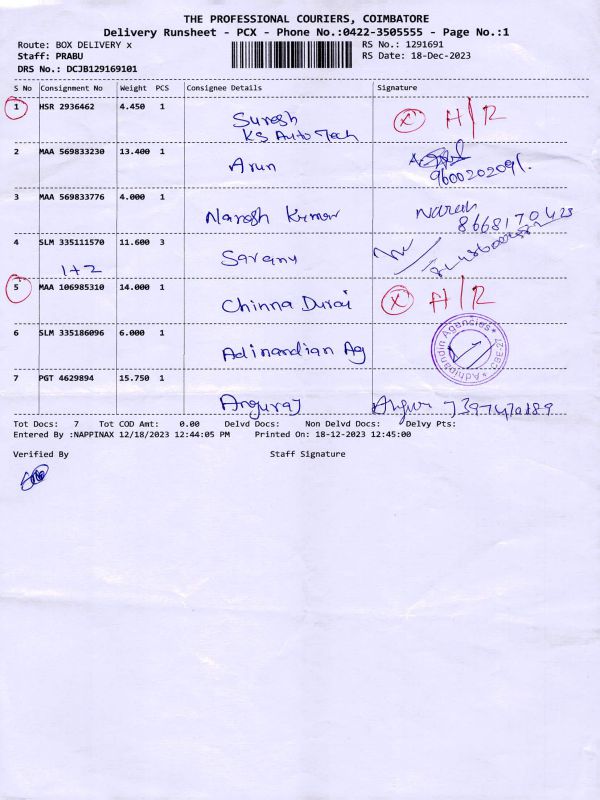 THE PROFESSIONAL COURIERS, COIMBATORE
Delivery Runsheet - PCX - Phone No.:0422-3505555 - Page No.:1
Route: BOX DELIVERY x RS No.: 1291691
Staff: PRABU RS Date: 18-Dec-2023
DRS No.: DCJB129169101
S No Consignment No Weight PCS Consignee Details Signature
1 HSR 2936462 4.450 1 Suresh X H/R
KS Auto Tech
2 MAA 569833230 13.400 1 Arun 9600202091.
3 MAA 569833776 4.000 1 Naresh Kumar Naresh
8668170423
4 SLM 335111570 11.600 3 Sarany
1+2
5 MAA 106985310 14.000 1 Chinna Durai X H/R
6 SLM 335186096 6.000 1 Adinandian Ag Agencies * CBE-27 *
7 PGT 4629894 15.750 1 Anguraj Angur
Tot Docs: 7 Tot COD Amt: 0.00 Delvd Docs: Non Delvd Docs: Delvy Pts:
Entered By :NAPPINAX 12/18/2023 12:44:05 PM Printed On: 18-12-2023 12:45:00
Verified By Staff Signature